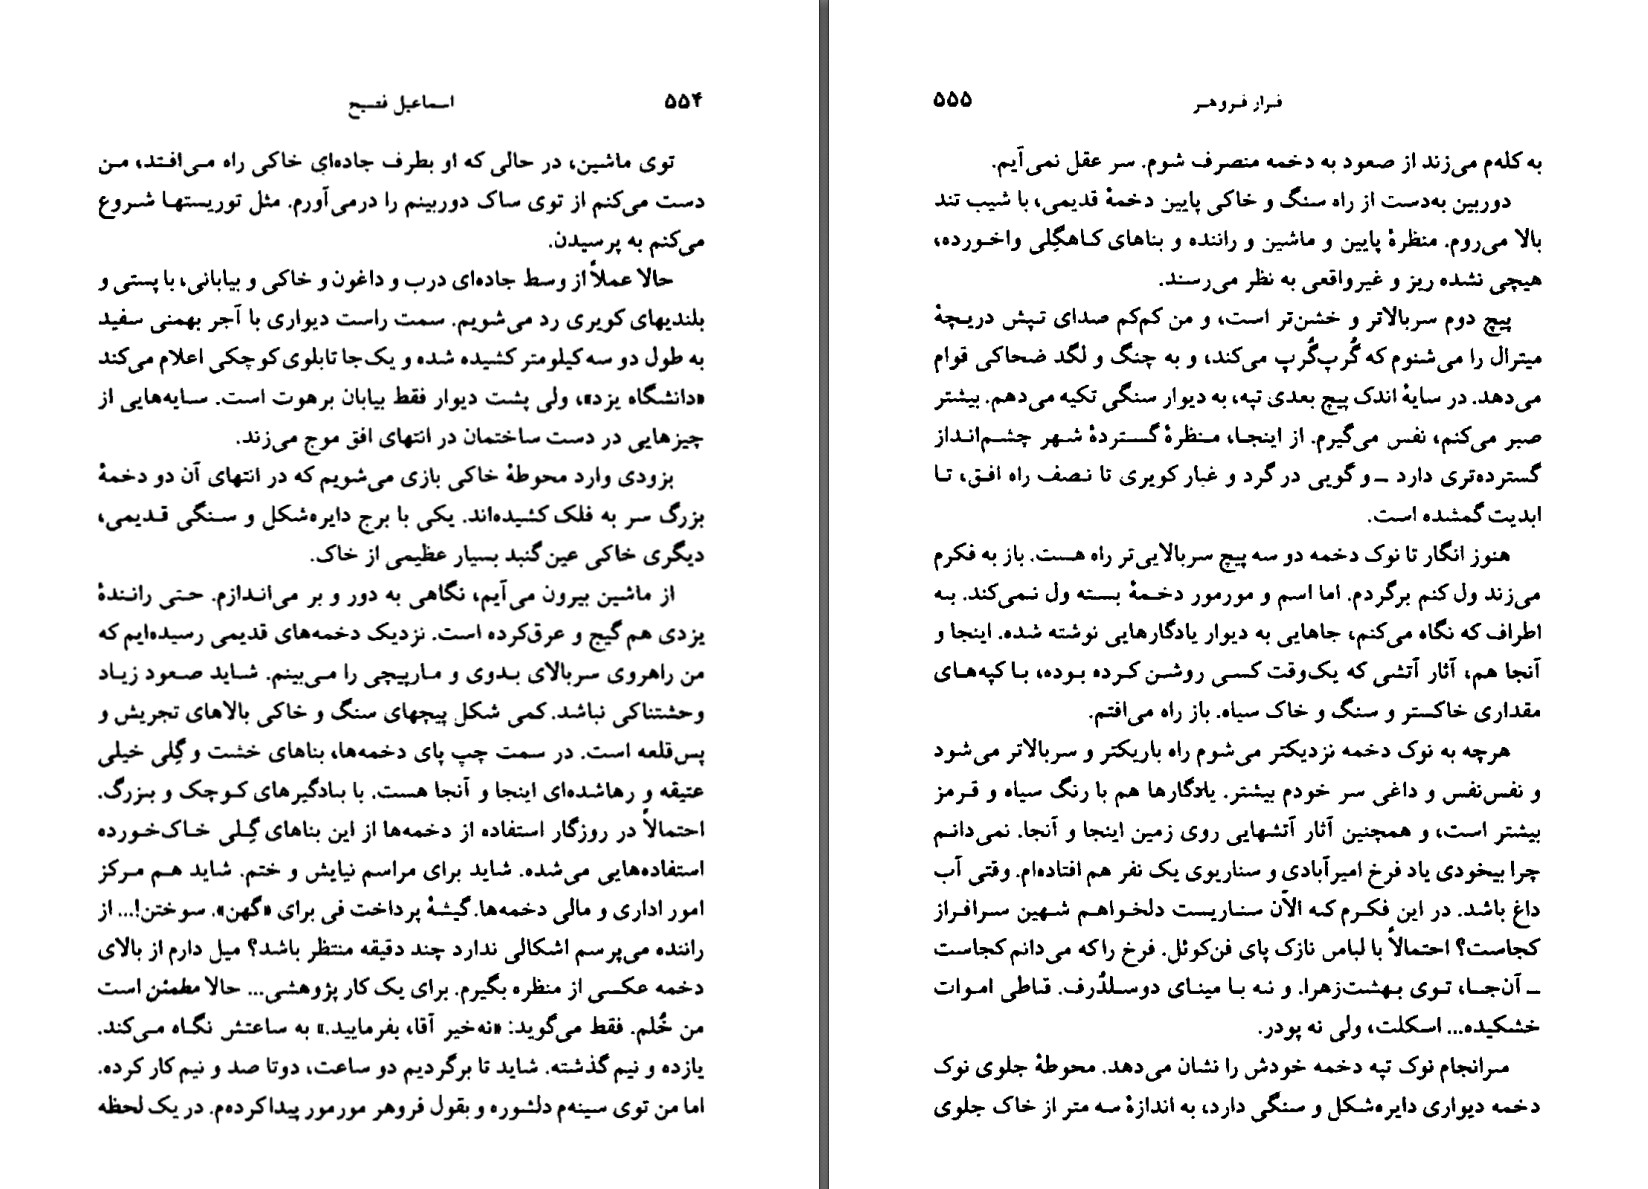 ۵۵۴ اسماعیل فصیح
توی ماشین، در حالی که او بطرف جاده‌ای خاکی راه می‌افتد، من
دست می‌کنم از توی ساک دوربینم را درمی‌آورم. مثل توریستها شروع
می‌کنم به پرسیدن.
حالا عملاً از وسط جاده‌ای درب و داغون و خاکی و بیابانی، با پستی و
بلندیهای کویری رد می‌شویم. سمت راست دیواری با آجر بهمنی سفید
به طول دو سه کیلومتر کشیده شده و یک‌جا تابلوی کوچکی اعلام می‌کند
«دانشگاه یزد»، ولی پشت دیوار فقط بیابان برهوت است. سایه‌هایی از
چیزهایی در دست ساختمان در انتهای افق موج می‌زند.
بزودی وارد محوطهٔ خاکی بازی می‌شویم که در انتهای آن دو دخمهٔ
بزرگ سر به فلک کشیده‌اند. یکی با برج دایره‌شکل و سنگی قدیمی،
دیگری خاکی عین گنبد بسیار عظیمی از خاک.
از ماشین بیرون می‌آیم، نگاهی به دور و بر می‌اندازم. حتی رانندهٔ
یزدی هم گیج و عرق‌کرده است. نزدیک دخمه‌های قدیمی رسیده‌ایم که
من راهروی سربالای بدوی و مارپیچی را می‌بینم. شاید صعود زیاد
وحشتناکی نباشد. کمی شکل پیچهای سنگ و خاکی بالاهای تجریش و
پس‌قلعه است. در سمت چپ پای دخمه‌ها، بناهای خشت و گِلی خیلی
عتیقه و رهاشده‌ای اینجا و آنجا هست. با بادگیرهای کوچک و بزرگ.
احتمالاً در روزگار استفاده از دخمه‌ها از این بناهای گِلی خاک‌خورده
استفاده‌هایی می‌شده. شاید برای مراسم نیایش و ختم. شاید هم مرکز
امور اداری و مالی دخمه‌ها. گیشهٔ پرداخت فی برای «گهن». سوختن!... از
راننده می‌پرسم اشکالی ندارد چند دقیقه منتظر باشد؟ میل دارم از بالای
دخمه عکسی از منظره بگیرم. برای یک کار پژوهشی... حالا مطمئن است
من خُلم. فقط می‌گوید: «نه‌خیر آقا، بفرمایید.» به ساعتش نگاه می‌کند.
یازده و نیم گذشته. شاید تا برگردیم دو ساعت، دوتا صد و نیم کار کرده.
اما من توی سینه‌م دلشوره و بقول فروهر مورمور پیدا کرده‌م. در یک لحظه
فرار فروهر ۵۵۵
به کله‌م می‌زند از صعود به دخمه منصرف شوم. سر عقل نمی‌آیم.
دوربین به‌دست از راه سنگ و خاکی پایین دخمهٔ قدیمی، با شیب تند
بالا می‌روم. منظرهٔ پایین و ماشین و راننده و بناهای کاهگِلی واخورده،
هیچی نشده ریز و غیرواقعی به نظر می‌رسند.
پیچ دوم سربالاتر و خشن‌تر است، و من کم‌کم صدای تپش دریچهٔ
میترال را می‌شنوم که گُرپ‌گُرپ می‌کند، و به چنگ و لگد ضحاکی قوام
می‌دهد. در سایهٔ اندک پیچ بعدی تپه، به دیوار سنگی تکیه می‌دهم. بیشتر
صبر می‌کنم، نفس می‌گیرم. از اینجا، منظرهٔ گستردهٔ شهر چشم‌انداز
گسترده‌تری دارد ـ و گویی در گرد و غبار کویری تا نصف راه افق، تا
ابدیت گمشده است.
هنوز انگار تا نوک دخمه دو سه پیچ سربالایی‌تر راه هست. باز به فکرم
می‌زند ول کنم برگردم. اما اسم و مورمور دخمهٔ بسته ول نمی‌کند. به
اطراف که نگاه می‌کنم، جاهایی به دیوار یادگارهایی نوشته شده. اینجا و
آنجا هم، آثار آتشی که یک‌وقت کسی روشن کرده بوده، با کپه‌های
مقداری خاکستر و سنگ و خاک سیاه. باز راه می‌افتم.
هرچه به نوک دخمه نزدیکتر می‌شوم راه باریکتر و سربالاتر می‌شود
و نفس‌نفس و داغی سر خودم بیشتر. یادگارها هم با رنگ سیاه و قرمز
بیشتر است، و همچنین آثار آتشهایی روی زمین اینجا و آنجا. نمی‌دانم
چرا بیخودی یاد فرخ امیرآبادی و سناریوی یک نفر هم افتاده‌ام. وقتی آب
داغ باشد. در این فکرم که الآن سناریست دلخواهم شهین سرافراز
کجاست؟ احتمالاً با لباس نازک پای فن‌کوئل. فرخ را که می‌دانم کجاست
ـ آن‌جا، توی بهشت‌زهرا. و نه با مینای دوسلدُرف. قاطی اموات
خشکیده... اسکلت، ولی نه پودر.
سرانجام نوک تپه دخمه خودش را نشان می‌دهد. محوطهٔ جلوی نوک
دخمه دیواری دایره‌شکل و سنگی دارد، به اندازهٔ سه متر از خاک جلوی